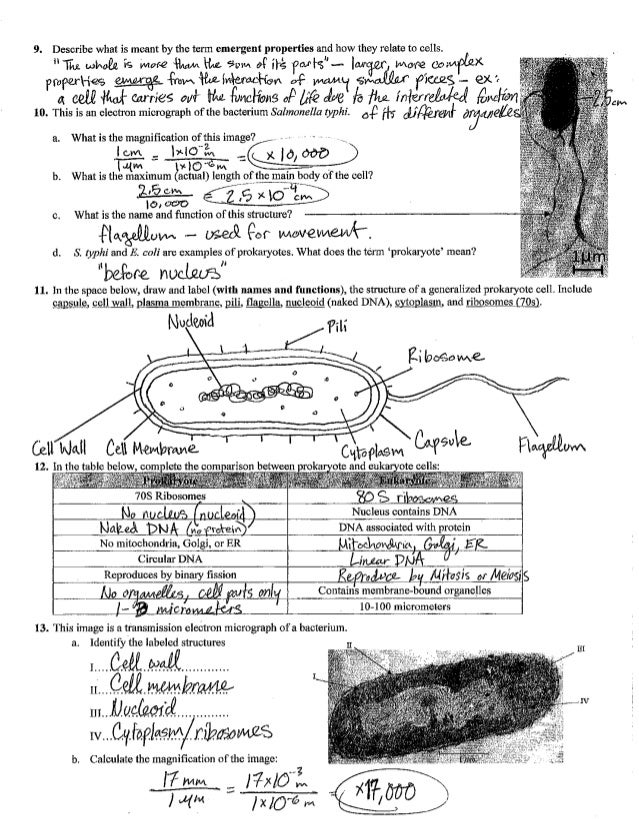 9. Describe what is meant by the term emergent properties and how they relate to cells.
"The whole is more than the sum of it's parts" – larger, more complex
properties emerge from the interaction of many smaller pieces – ex:
a cell that carries out the functions of life due to the interrelated function
of its different organelles
2.5cm
10. This is an electron micrograph of the bacterium Salmonella typhi.
a. What is the magnification of this image?
1cm / 1µm = 1x10⁻²m / 1x10⁻⁶m = x 10,000
b. What is the maximum (actual) length of the main body of the cell?
2.5cm / 10,000 = 2.5 x 10⁻⁴ cm
c. What is the name and function of this structure?
flagellum – used for movement.
d. S. typhi and E. coli are examples of prokaryotes. What does the term 'prokaryote' mean?
"before nucleus"
1µm
11. In the space below, draw and label (with names and functions), the structure of a generalized prokaryote cell. Include
capsule, cell wall, plasma membrane, pili, flagella, nucleoid (naked DNA), cytoplasm, and ribosomes (70s).
Nucleoid
Pili
Ribosome
Cell Wall Cell Membrane Cytoplasm Capsule Flagellum
12. In the table below, complete the comparison between prokaryote and eukaryote cells:
Prokaryote Eukaryote
70S Ribosomes 80S ribosomes
No nucleus (nucleoid) Nucleus contains DNA
Naked DNA (no protein) DNA associated with protein
No mitochondria, Golgi, or ER Mitochondria, Golgi, ER
Circular DNA Linear DNA
Reproduces by binary fission Reproduce by Mitosis or Meiosis
No organelles, cell parts only Contains membrane-bound organelles
1- micrometers 10-100 micrometers
13. This image is a transmission electron micrograph of a bacterium.
a. Identify the labeled structures
I. Cell wall
II. Cell membrane
III. Nucleoid
IV. Cytoplasm/ribosomes
I
II
III
IV
b. Calculate the magnification of the image:
17 mm / 1 µm = 17x10⁻³m / 1x10⁻⁶ m = x17,000